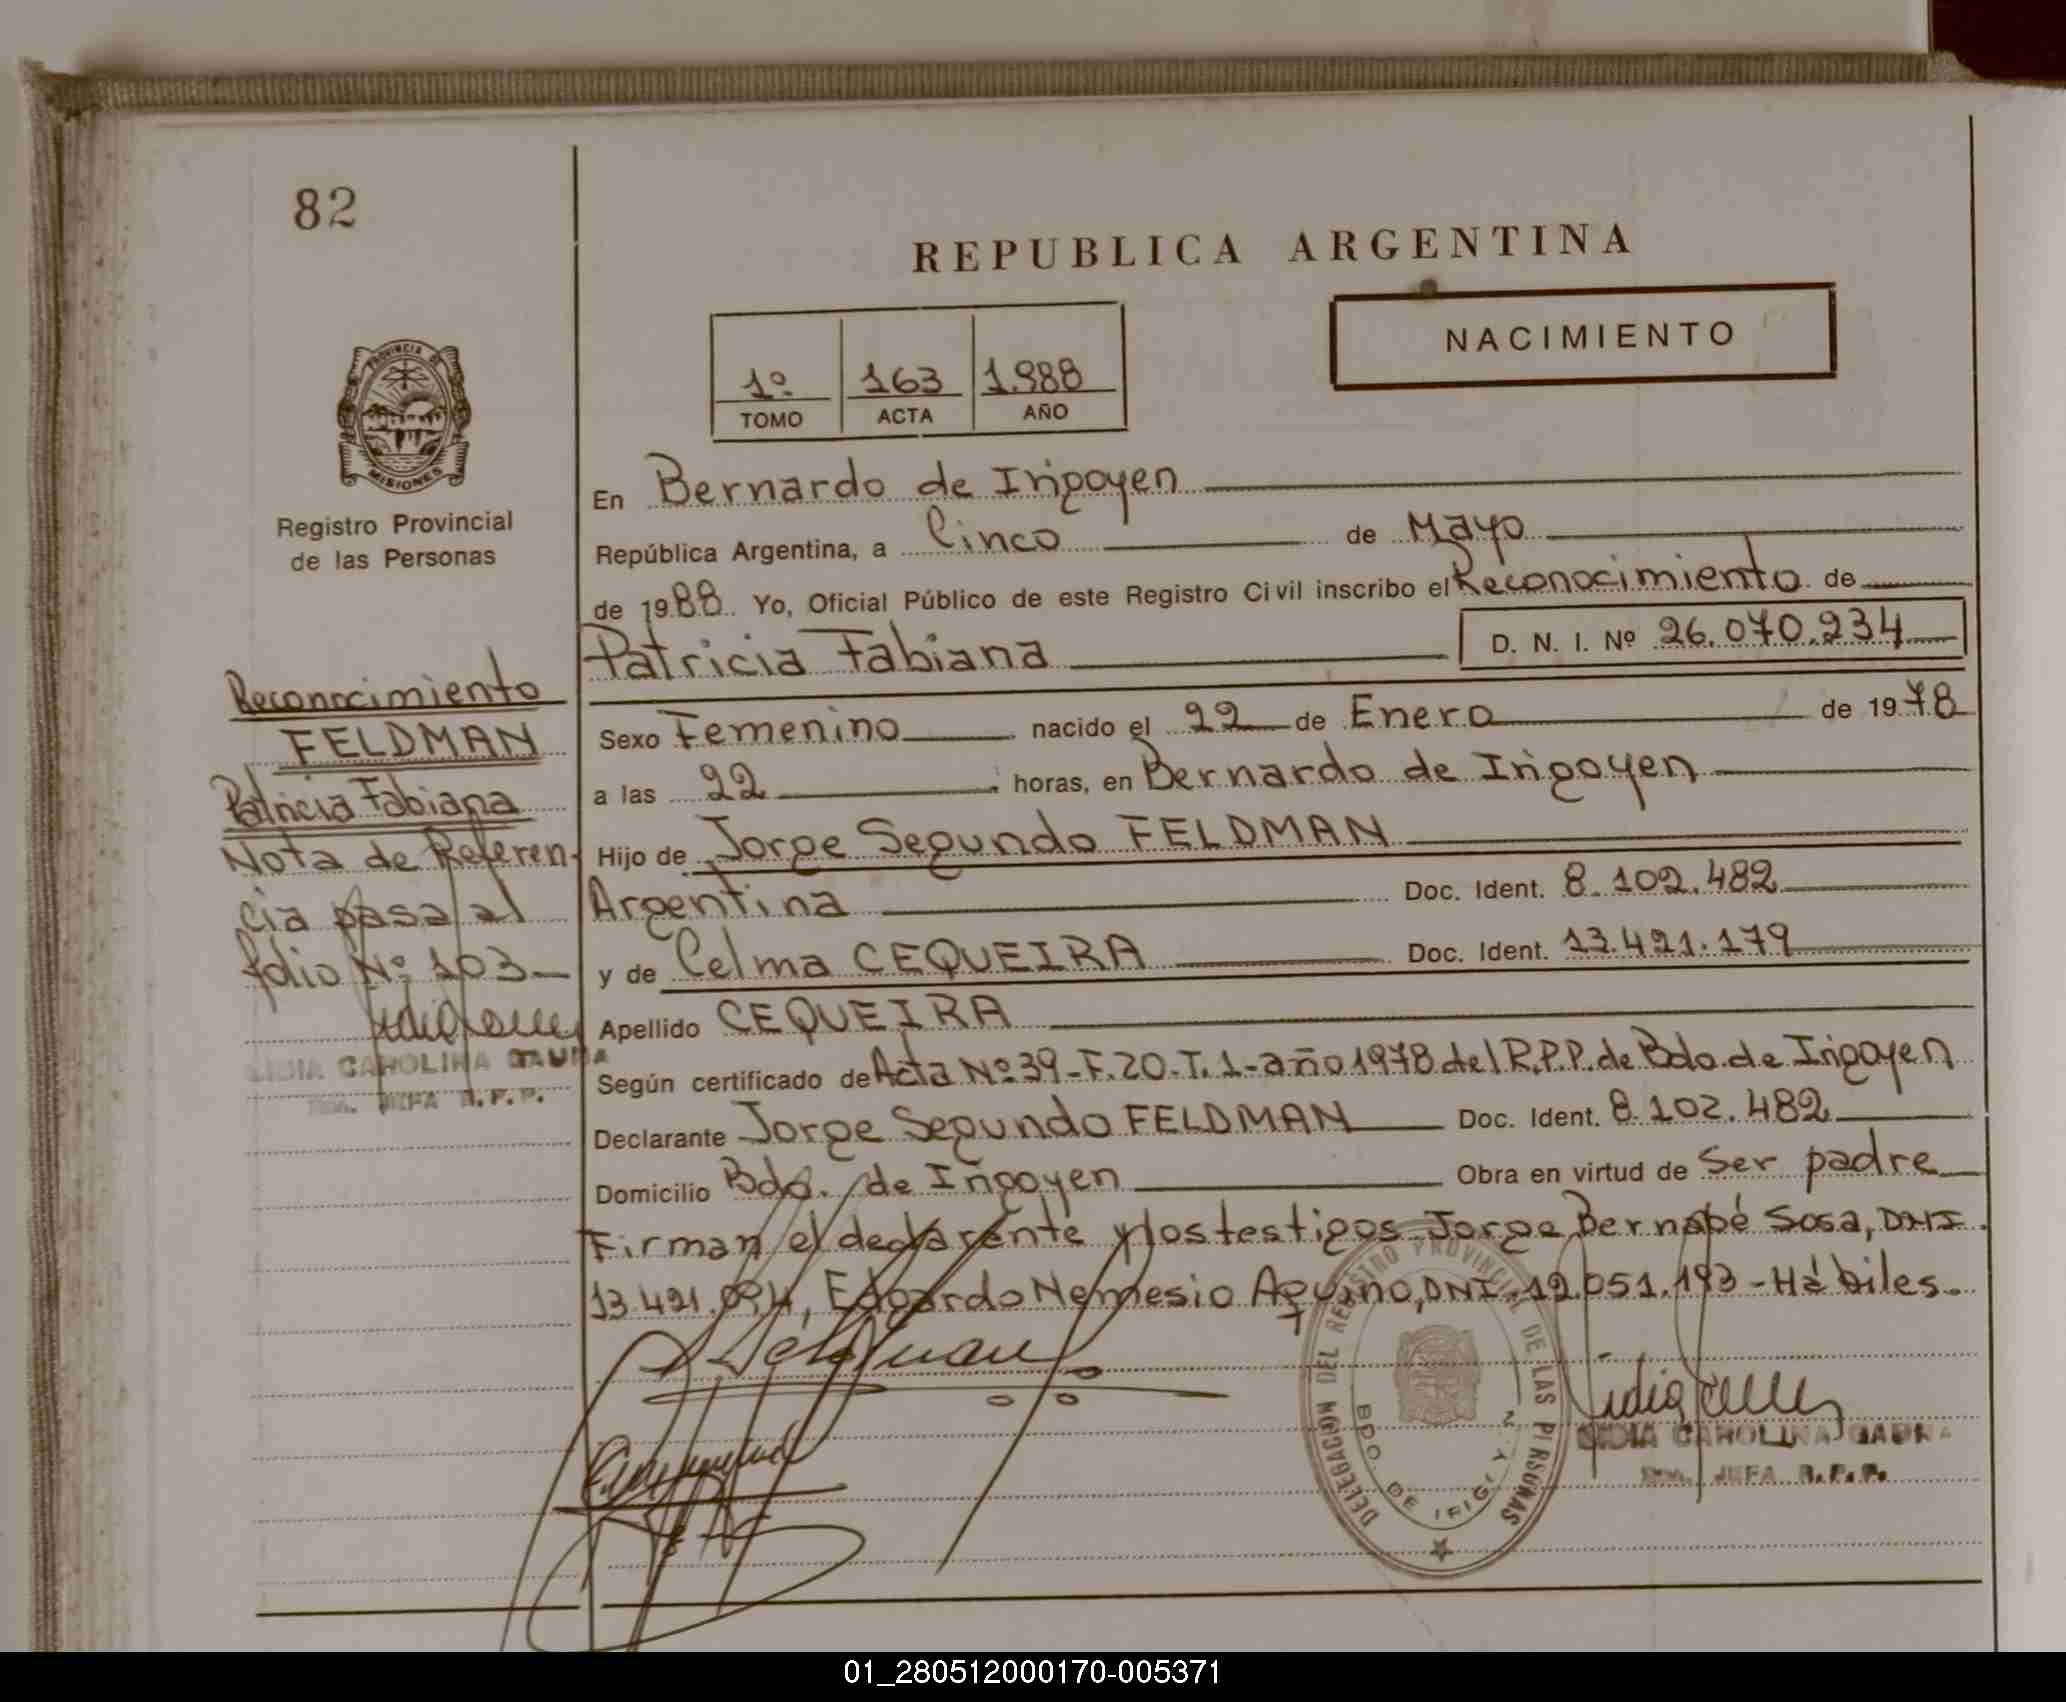 82
REPUBLICA ARGENTINA
NACIMIENTO
1º 163 1.988
TOMO ACTA AÑO
PROVINCIA DE
MISIONES
Registro Provincial
de las Personas
En Bernardo de Irigoyen
República Argentina, a Cinco de Mayo
de 1988 Yo, Oficial Público de este Registro Civil inscribo el Reconocimiento de
Patricia Fabiana D. N. I. Nº 26.070.234
Sexo Femenino nacido el 22 de Enero de 1978
a las 22 horas, en Bernardo de Irigoyen
Hijo de Jorge Segundo FELDMAN
Argentina Doc. Ident. 8.102.482
y de Celma CEQUEIRA Doc. Ident. 13.421.179
Apellido CEQUEIRA
Según certificado de Acta Nº 39-F.20-T.1-año 1978 del R.P.P. de Bdo. de Irigoyen
Declarante Jorge Segundo FELDMAN Doc. Ident. 8.102.482
Domicilio Bdo. de Irigoyen Obra en virtud de Ser padre
Firman el declarante y los testigos Jorge Bernabé Sosa, DNI
13.421.094, Edgardo Nemesio Aquino, DNI. 12.051.193 - Hábiles.
Reconocimiento
FELDMAN
Patricia Fabiana
Nota de Referen-
cia pasa al
folio Nº 103
LIDIA CAROLINA GAUNA
JEFA R.P.P.
Feldman
DELEGACION DEL REGISTRO PROVINCIAL DE LAS PERSONAS
BDO. DE IRIGOYEN
LIDIA CAROLINA GAUNA
JEFA R.P.P.
01_280512000170-005371